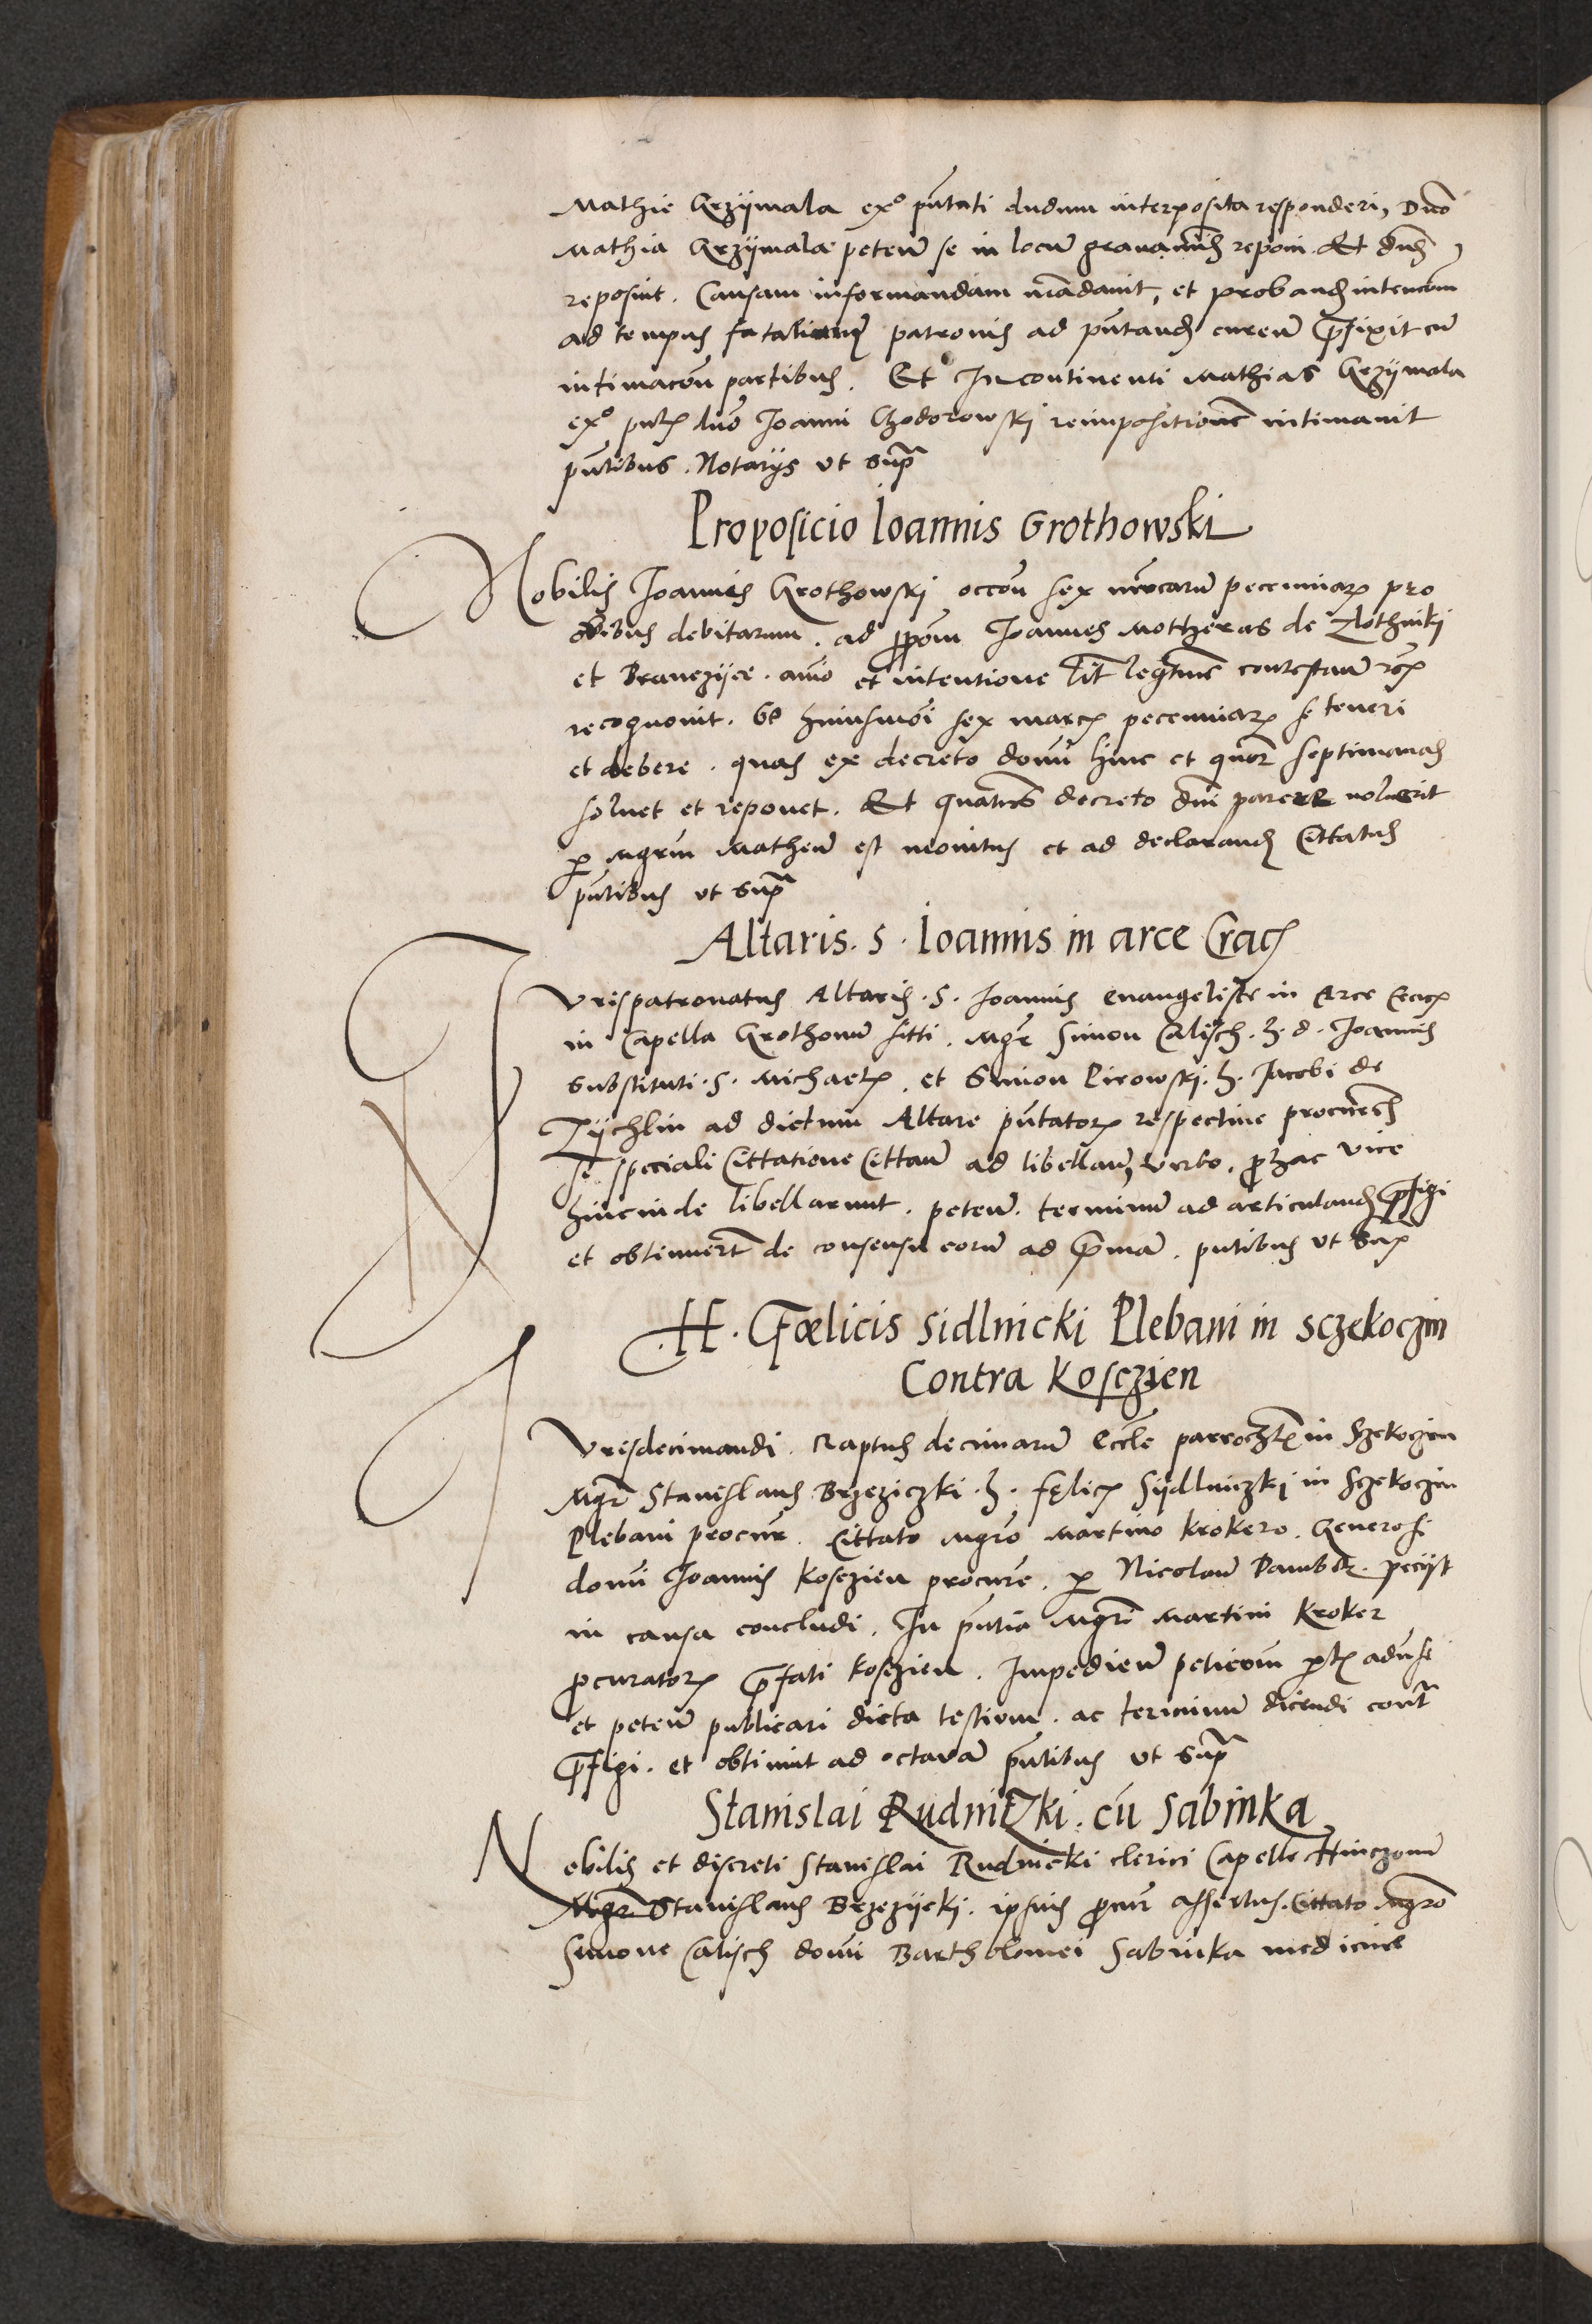 Mathie Grzÿmala exº pñtati dudum interposita responderi, Dnō
Mathia Grzÿmala petenñ se in locũ grauaminis reponi. Et dñs
reposuit. Causam informandam mãdauit, et probandᷤ intencõm
ad tempus fatalium patronis ad pñtandᷤ curenñ p̃fixit cũ
intimacõn partibus. Et Incontinenti Mathias Grzÿmala
exº dnō Joanni Chodorowski reimpositionẽ intimauit
pñtibus. Notarÿs ut sup̃
Proposicio Joannis Grothowski
Nobilis Joannis Grothowski occõn sex mrcarũ pecuniarꝝ pro
debitarum. ad p̃põm Joannes Motheras de Zlothniki
et Branczÿce. aĩo et intentione lit̃ legitime contestanñ
recognouit. huiusmõi sex marcꝭ pecuniarꝝ se teneri
et debere. quas ex decreto domĩ hinc et quor̃ septimanas
soluet et reponet. Et quatñs decreto dñi parere noluerit
ꝑ Mgrm̃ Matheũ est monitus et ad declarandᷤ Cittatus
pñtibus ut sup̃
Altaris. S. Joannis in arce Cracꝭ
Jurispatronatus Altaris. S. Joannis Euangeliste in Arce Cracꝭ
in Capella Grothonũ sitti. Mgr̃ Simon Calisch. h. d. Joannis
substituti. S. Michaelꝭ. et Simon Pirowski. h. Jacobi de
Zÿchlin ad dictum Altare pñtatorꝝ respectiue procures
se speciali Cittatione Cittanñ ad libellanᷤ, verbo, ꝓ hac vice
hincinde libellarunt. petenñ. terminũ ad articulandᷤ p̃figi
et obtinuerũt de consensu eorũ ad p̃mã. pñtibus ut supꝭ
H. Fœlicis Sidlnicki Plebani in Sczekoczin
Contra Kosczien
Jurisdecimandi. Raptus decimarũ Eccl̃e parrochꝭ in Sczekoczin
Mgr̃ Stanislaus Brzeziczki. h. Fęlicꝭ Sÿdlniczkj in Sczekoczin
Plebani procur̃. Cittato Mgrõ Martino Krokero. Generosi
domĩ Joannis Kosczien procurẽ. ꝑ Nicolaũ Dambek. pecÿt
in causa concludi. In pñtia Mgrĩ Martini Kroker
ꝓcuratorꝭ p̃fati Kosczien. Impedienñ peticõm ꝑtꝭ aduẽse
et petenñ publicari dicta testium. ac terminum dicendi contr̃
p̃figi. et obtinuit ad octauã pñtibus ut sup̃
Stanislai Rudnitzki. cũ Sabinka
Nobilis et discreti Stanislai Rudnicki clerici Capelle Hinczonũ
Mgr̃ Stanislaus Brzezÿcki. ipsius ꝓcur̃ assertus. Cittato Mgrõ
Simone Calisch domĩ Bartholomei Sabinka medicine